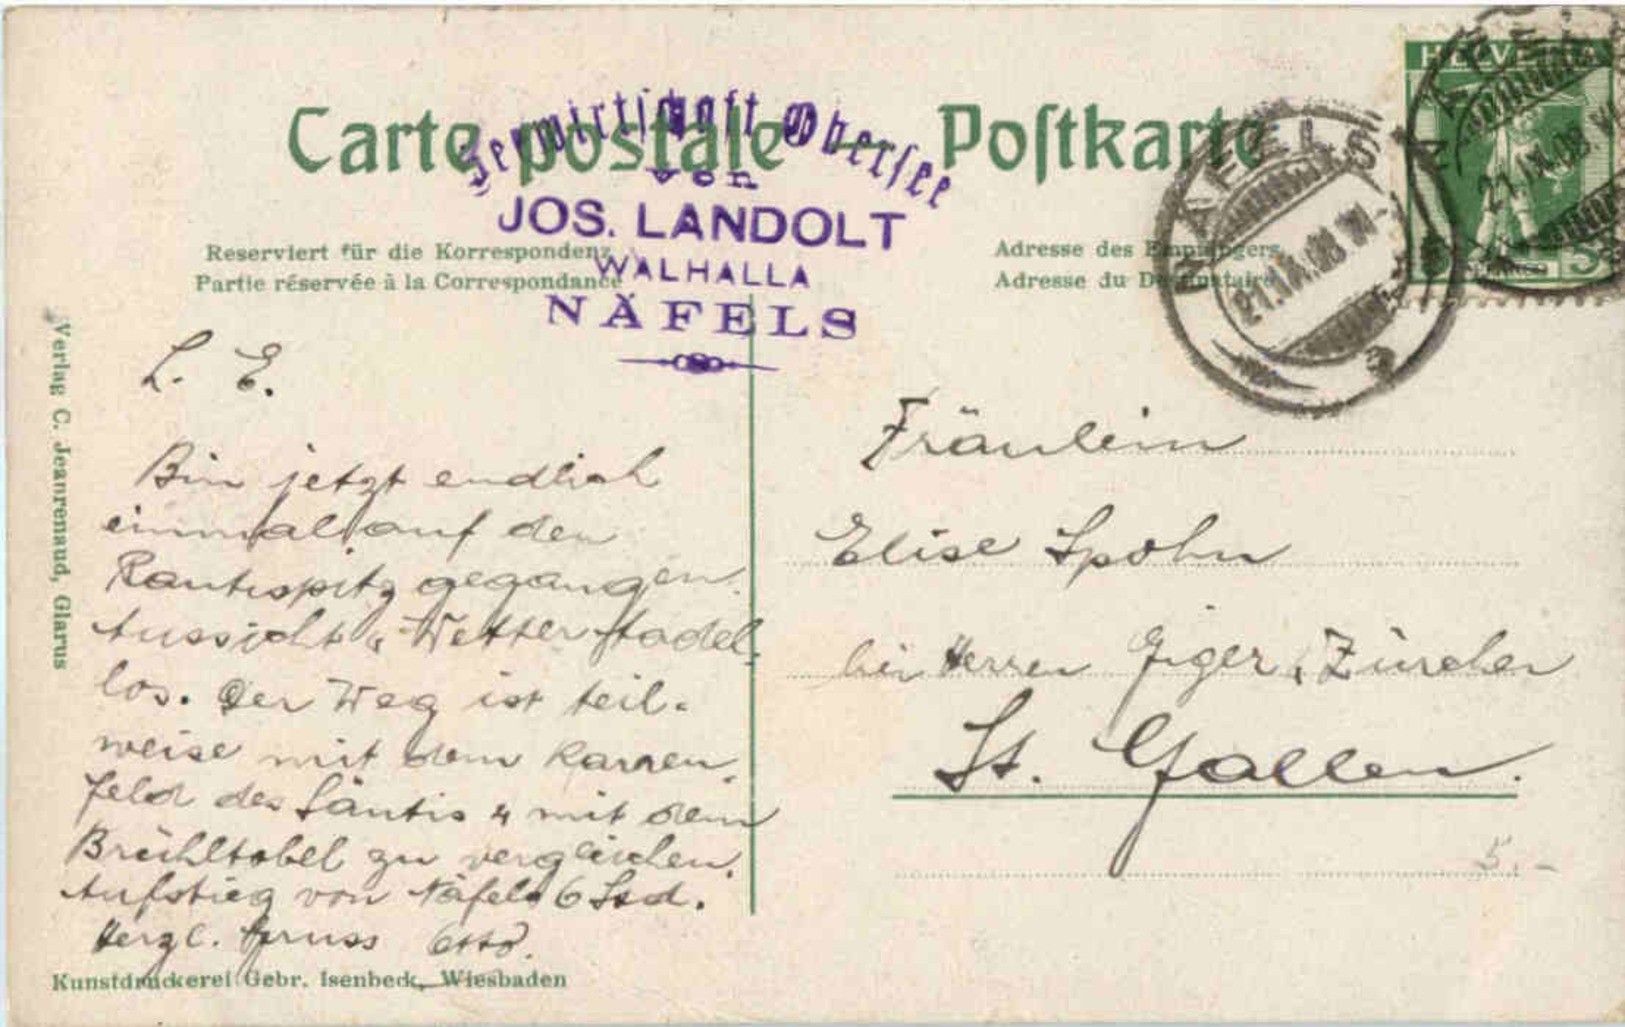 Carte postale — Postkarte
Seewirtschaft Obersee
von
JOS. LANDOLT
WALHALLA
NÄFELS
Reserviert für die Korrespondenz
Partie réservée à la Correspondance
Adresse des Empfängers
Adresse du Destinataire
HELVETIA
5
NÄFELS
21.IX.08.VI
NÄFELS
21.IX.08.VI
L. E.
Bin jetzt endlich
einmal auf den
Rautispitz gegangen.
Aussicht u. Wetter tadel-
los. Der Weg ist teil-
weise mit dem Karren-
feld des Säntis u mit dem
Brühltobel zu vergleichen.
Aufstieg von Näfels 6 Std.
Herzl. Gruss Otto.
Fräulein
Elise Spohn
bei Herren Giger, Zürcher
St. Gallen.
5.-
Verlag C. Jeanrenaud, Glarus
Kunstdruckerei Gebr. Isenbeck, Wiesbaden